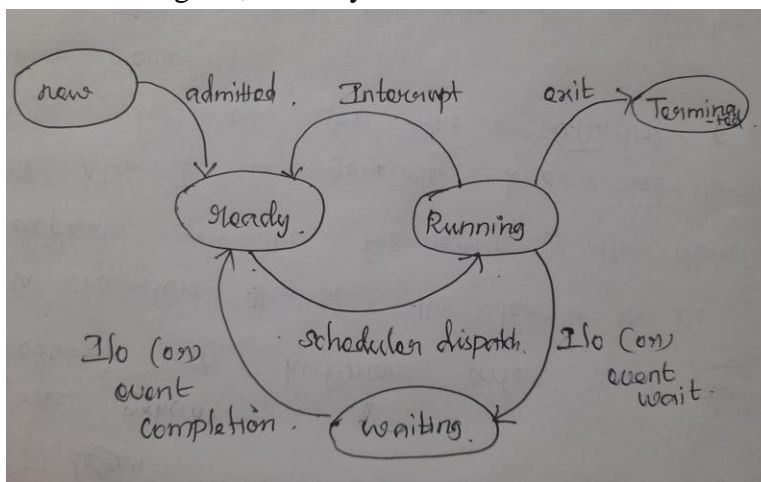 new
admitted.
Interrupt
exit
Termina
-ted
ready.
Running
scheduler dispatch.
I/o (or)
event
completion.
I/o (or)
event
wait.
waiting.